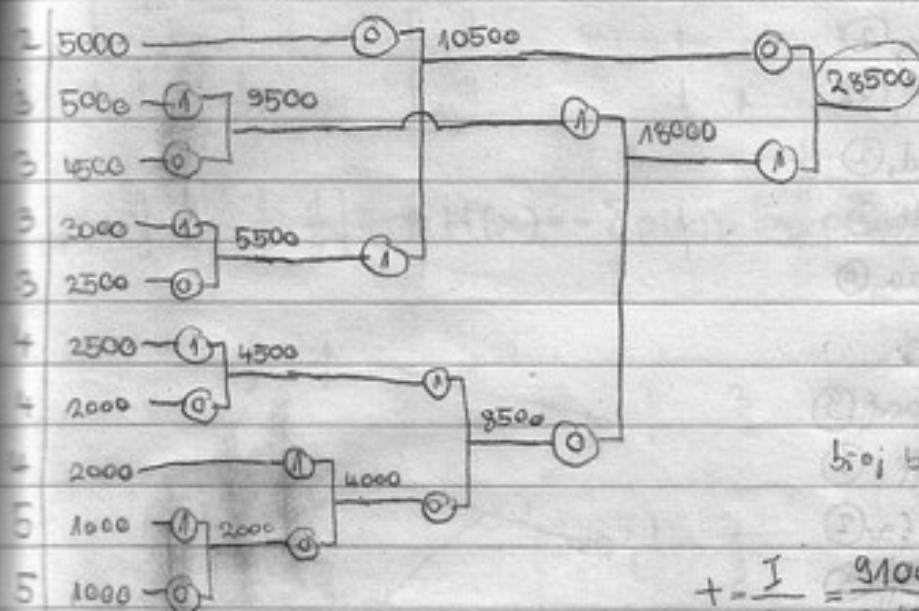 2 5000 0 10500 0 28500
3 5000 1 9500 1 18000
3 4500 0 1
3 3000 1 5500 1
3 2500 0
4 2500 1 4500 1
4 2000 0 8500 0
4 2000 1 4000 0 broj
5 1000 1 2000 0
5 1000 0
I = 9100